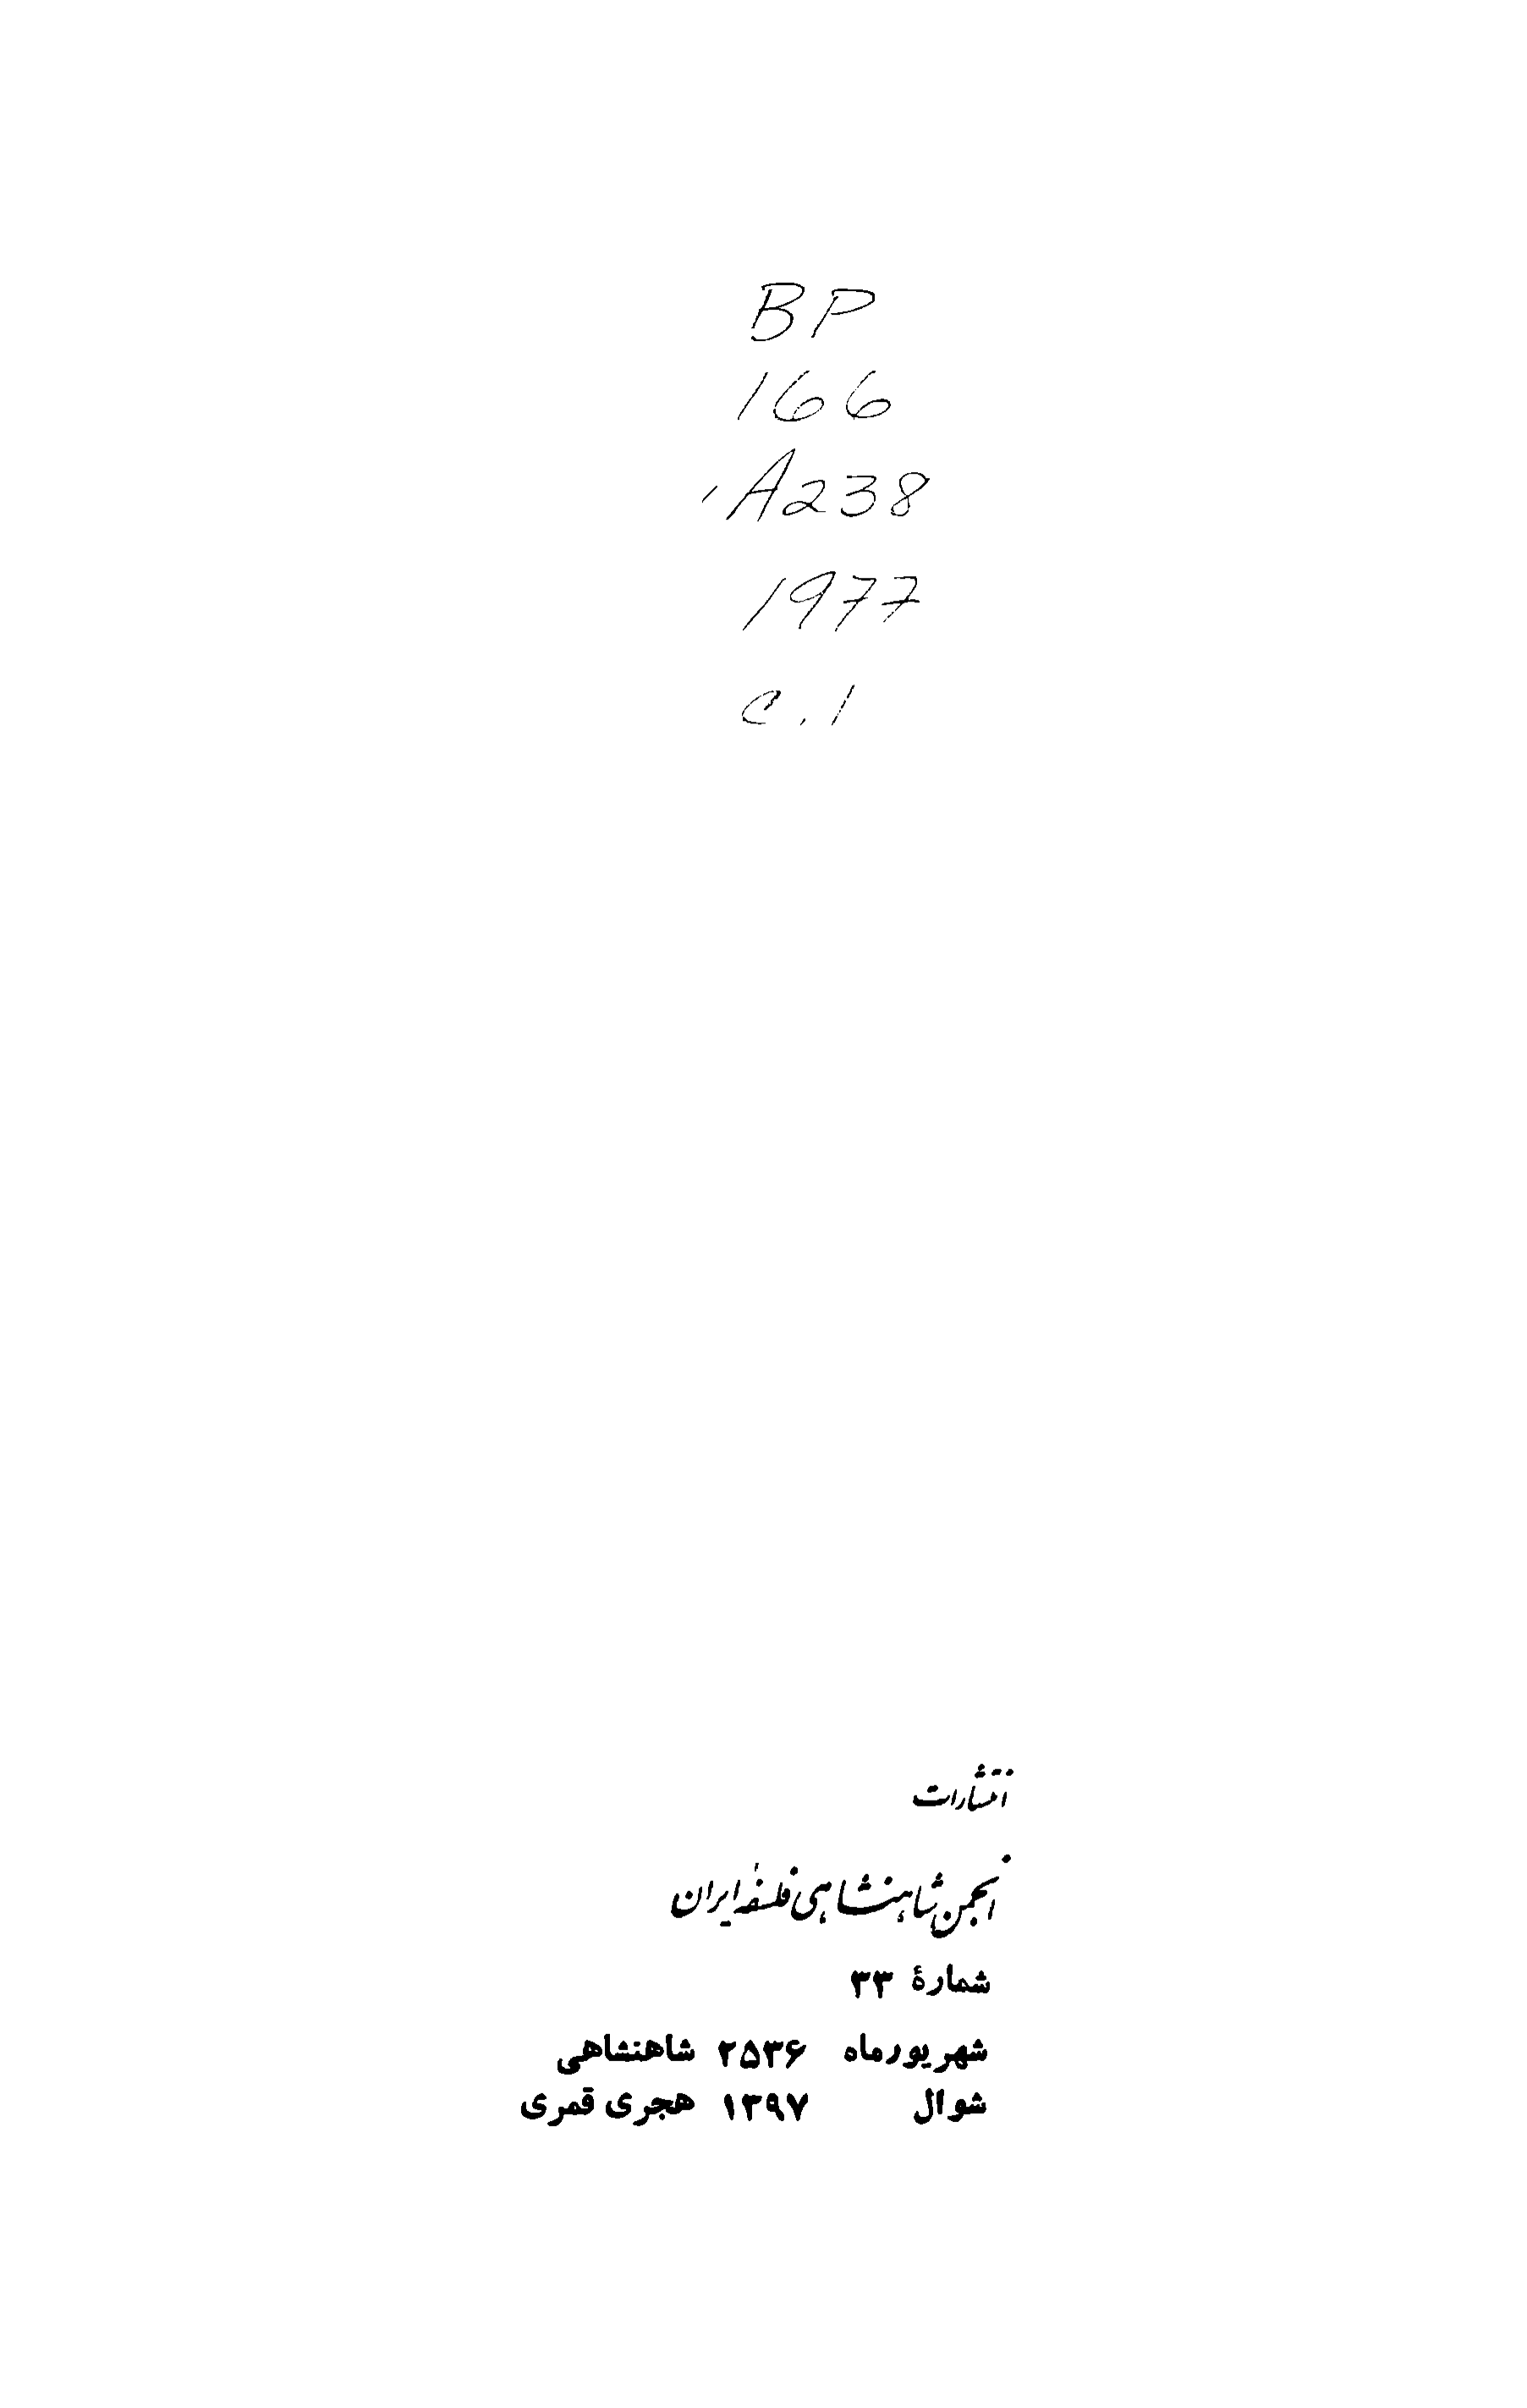 BP
166
.A238
1977
c.1
انتشارات
انجمن شاهنشاهی فلسفهٔ ایران
شمارهٔ ۳۳
شهریورماه ۲۵۳۶ شاهنشاهی
شوال ۱۳۹۷ هجری قمری